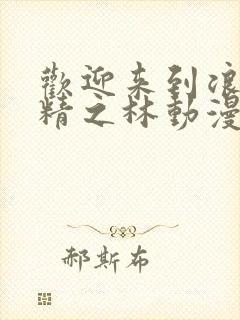 歡迎来到浪
精之林動漫
郝斯布